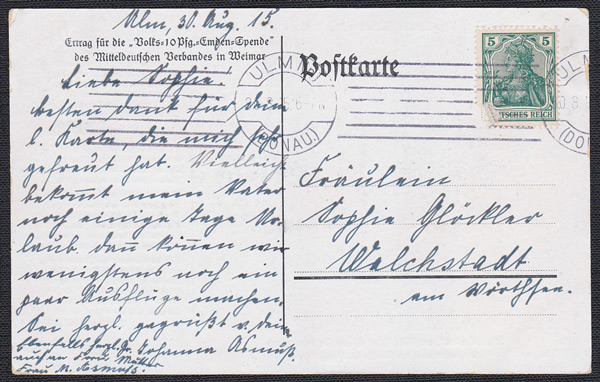 Ulm, 30. Aug. 15.
Ertrag für die „Volks-10 Pfg.-Emden-Spende“
des Mitteldeutschen Verbandes in Weimar
Liebe Sophie.
besten Dank für deine
l. Karte, die mich sehr
gefreut hat. Vielleicht
bekommt mein Vater
noch einige Tage Ur-
laub, dann können wir
wenigstens noch ein
paar Ausflüge machen.
Sei herzl. gegrüßt v. dein.
Johanna Asmuß.
Ebenfalls herzl. Gr.
auch an Frau Mutter
Frau M. Asmuß.
Postkarte
ULM
(DONAU)
5
5
DEUTSCHES REICH
ULM
(DO
Fräulein
Sophie Glöckler
Walchstadt
am Wörthsee.